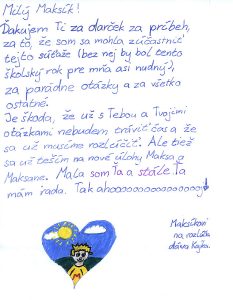 Milý Maksík!
Ďakujem Ti za darček za príbeh,
za to, že som sa mohla zúčastniť
tejto súťaže (bez nej by bol tento
školský rok pre mňa asi nudný),
za parádne otázky a za všetko
ostatné.
Je škoda, že už s Tebou a Tvojimi
otázkami nebudem tráviť čas a že
sa už musíme rozlúčiť. Ale tiež
sa už teším na nové úlohy Maksa a
Maksane. Mala som Ťa a stále Ťa
mám rada. Tak ahooooooooooooooj
Maksíkovi
na rozlúčku